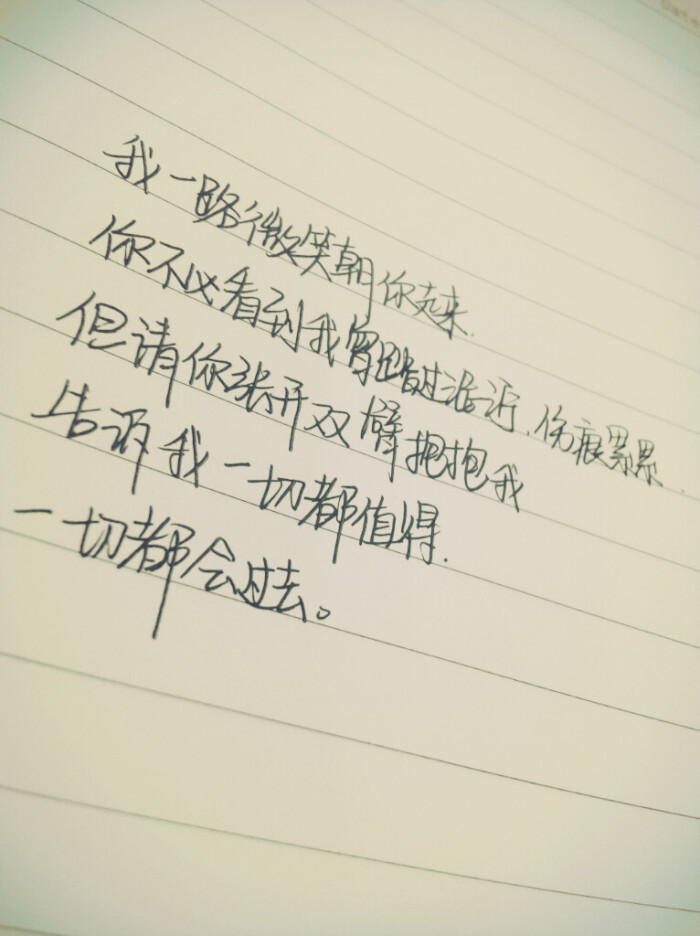 Date
我一路微笑朝你走来.
你不必看到我穿踏过泥泞.伤痕累累.
但请你张开双臂拥抱我
告诉我一切都值得.
一切都会过去。